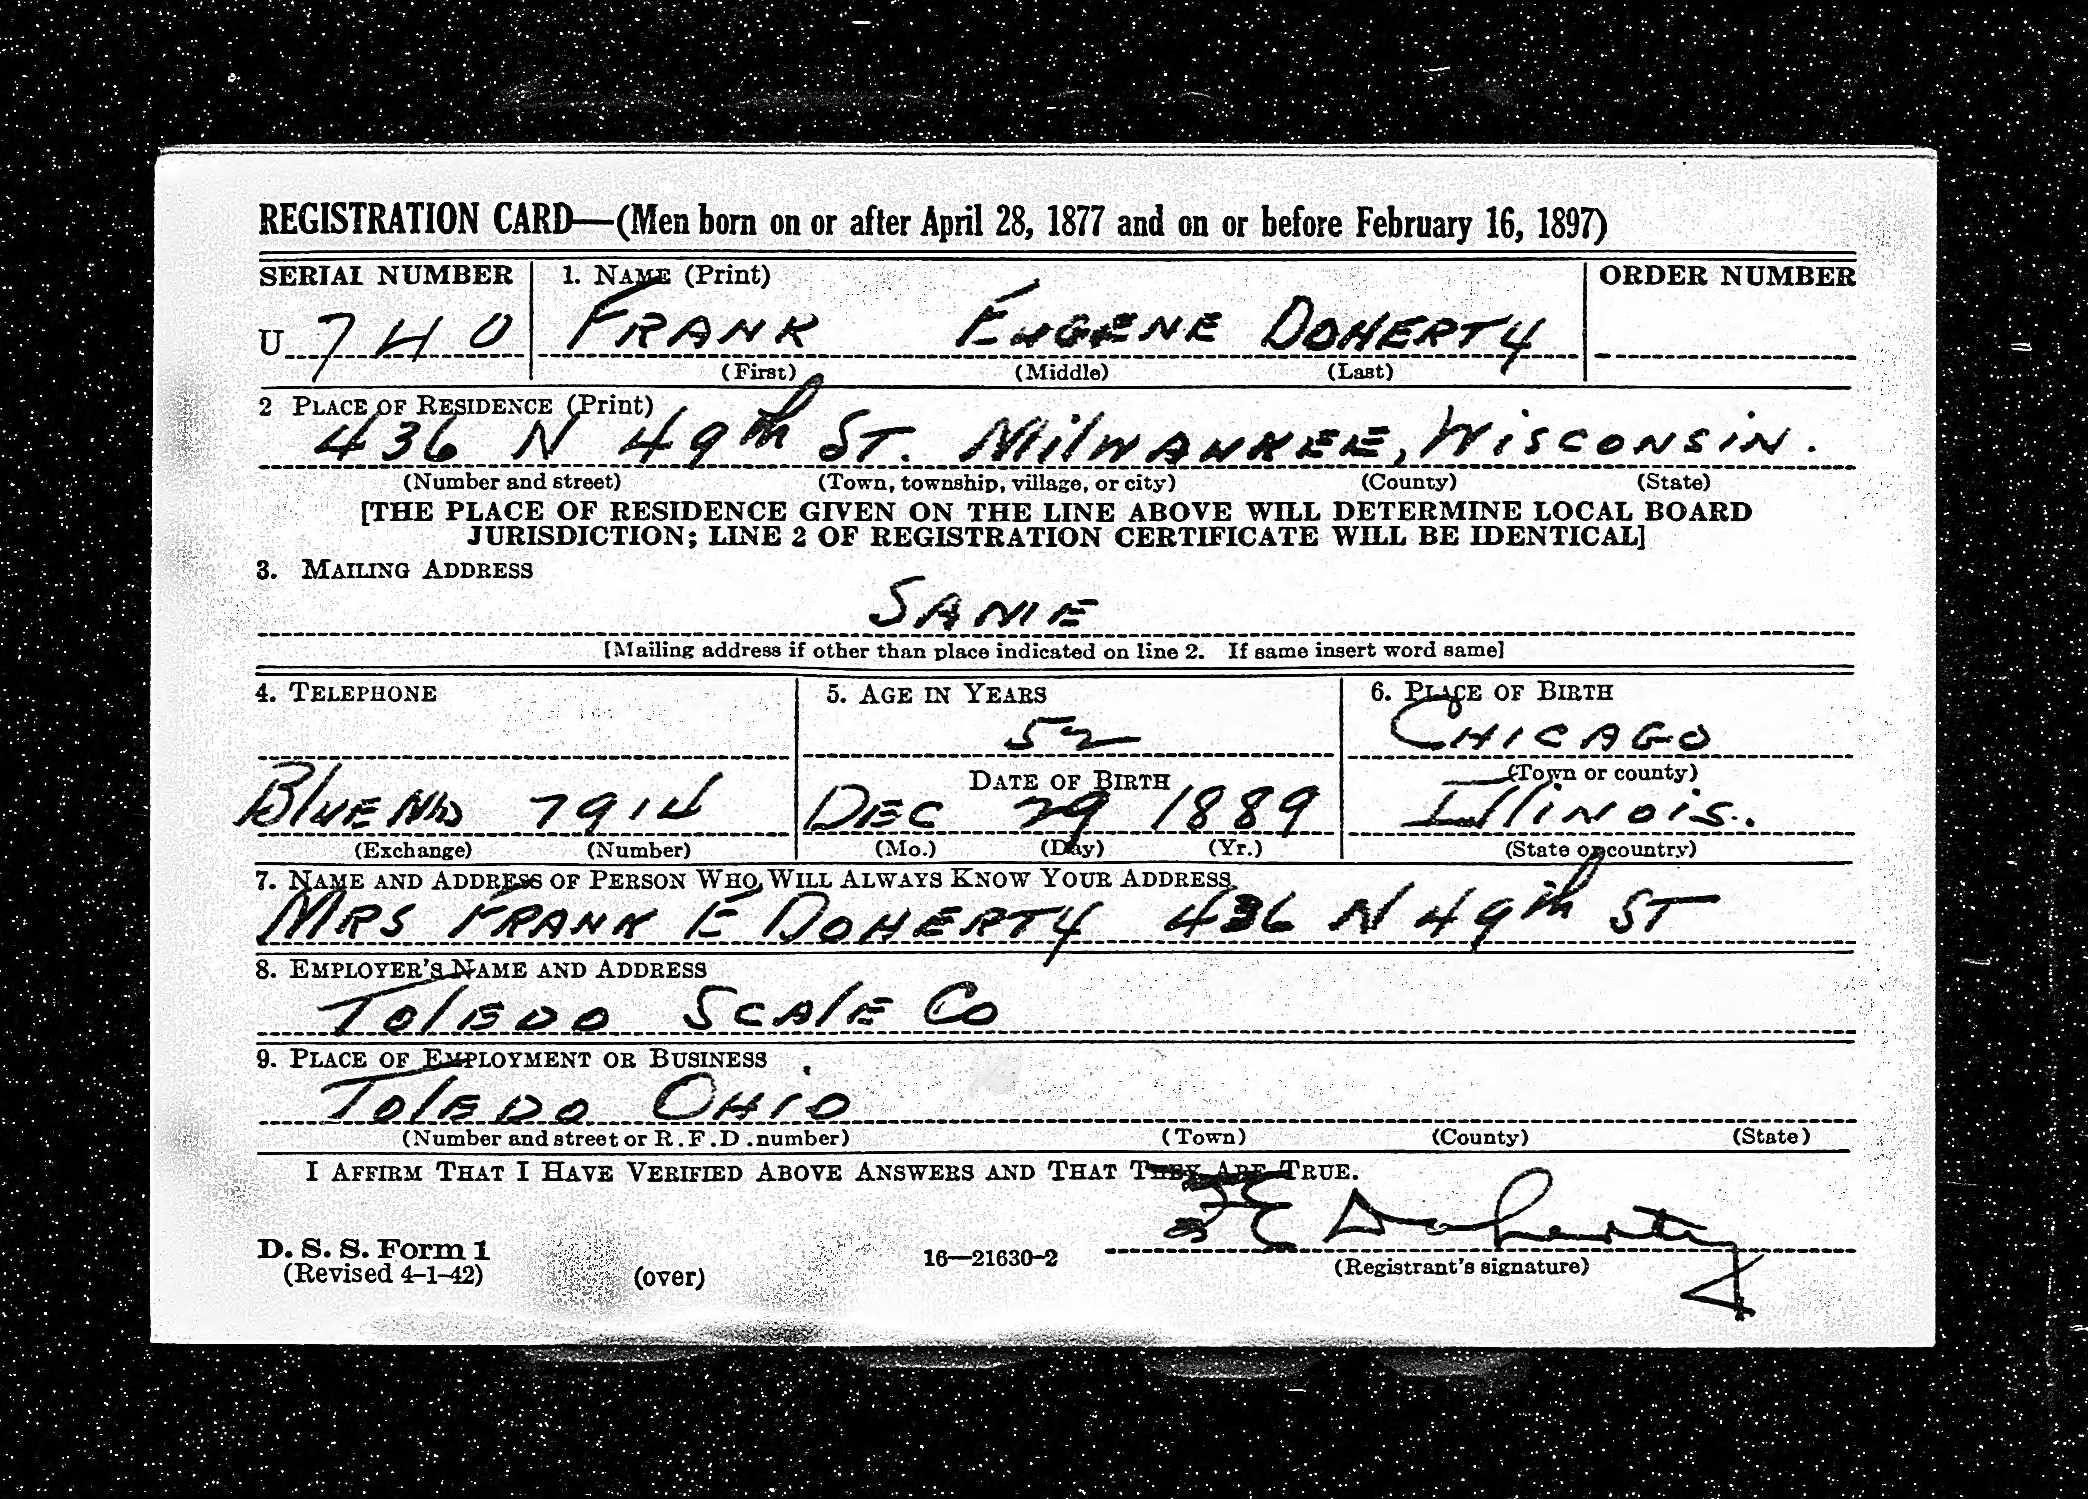 REGISTRATION CARD—(Men born on or after April 28, 1877 and on or before February 16, 1897)
SERIAL NUMBER 1. NAME (Print) ORDER NUMBER
U 740 FRANK EUGENE DOHERTY
(First) (Middle) (Last)
2 PLACE OF RESIDENCE (Print)
436 N 49th ST. MilWAUKEE, WISCONSIN.
(Number and street) (Town, township, village, or city) (County) (State)
[THE PLACE OF RESIDENCE GIVEN ON THE LINE ABOVE WILL DETERMINE LOCAL BOARD
JURISDICTION; LINE 2 OF REGISTRATION CERTIFICATE WILL BE IDENTICAL]
3. MAILING ADDRESS
SAME
[Mailing address if other than place indicated on line 2. If same insert word same]
4. TELEPHONE 5. AGE IN YEARS 6. PLACE OF BIRTH
52 CHICAGO
DATE OF BIRTH (Town or county)
BlUE 7914 DEC 29 1889 IllINOIS.
(Exchange) (Number) (Mo.) (Day) (Yr.) (State or country)
7. NAME AND ADDRESS OF PERSON WHO WILL ALWAYS KNOW YOUR ADDRESS
MRS FRANK E DOHERTY 436 N 49th ST
8. EMPLOYER'S NAME AND ADDRESS
TOlEDO SCAlE CO
9. PLACE OF EMPLOYMENT OR BUSINESS
TOlEDO OHIO
(Number and street or R.F.D. number) (Town) (County) (State)
I AFFIRM THAT I HAVE VERIFIED ABOVE ANSWERS AND THAT THEY ARE TRUE.
F E Doherty
D. S. S. Form 1
(Revised 4-1-42) (over) 16—21630-2 (Registrant's signature)